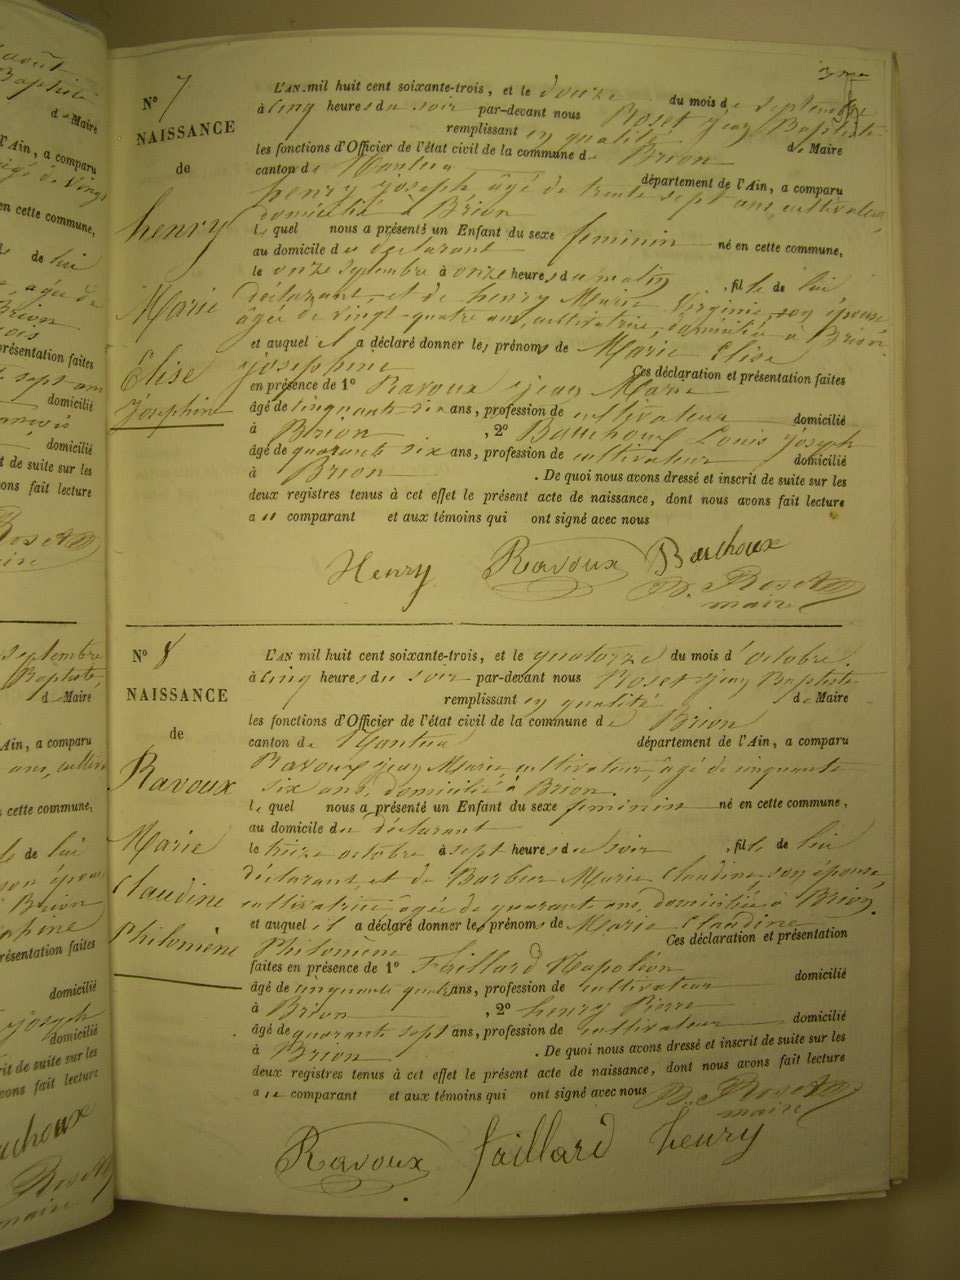 3me
N° 7
NAISSANCE
de
henry
Marie
Elise
Joséphine
L'AN mil huit cent soixante-trois, et le douze du mois de septembre
à cinq heures du soir par-devant nous Roset Jean Baptiste
remplissant en qualité de Maire
les fonctions d'Officier de l'état civil de la commune de Brion
canton de Nantua département de l'Ain, a comparu
henry Joseph, âgé de trente sept ans, cultivateur
domicilié à Brion
lequel nous a présenté un Enfant du sexe feminin né en cette commune,
au domicile du déclarant
le onze septembre à onze heures du matin, fille de lui
déclarant, et de henry Marie Virginie, son épouse
âgée de vingt-quatre ans, cultivatrice, domiciliée à Brion
et auquel il a déclaré donner les prénoms de Marie Elise
Joséphine Ces déclaration et présentation faites
en présence de 1° Ravoux Jean Marie
âgé de cinquante-six ans, profession de cultivateur domicilié
à Brion, 2° Bauchoux Louis Joseph
âgé de quarante six ans, profession de cultivateur domicilié
à Brion. De quoi nous avons dressé et inscrit de suite sur les
deux registres tenus à cet effet le présent acte de naissance, dont nous avons fait lecture
au comparant et aux témoins qui ont signé avec nous
Henry Ravoux Bauchoux
B. Roset
maire
N° 8
NAISSANCE
de
Ravoux
Marie
Claudine
Philomène
L'AN mil huit cent soixante-trois, et le quatorze du mois d'octobre.
à cinq heures du soir par-devant nous Roset Jean Baptiste
remplissant en qualité de Maire
les fonctions d'Officier de l'état civil de la commune de Brion
canton de Nantua département de l'Ain, a comparu
Ravoux Jean Marie, cultivateur, âgé de cinquante
six ans, domicilié à Brion.
lequel nous a présenté un Enfant du sexe feminin né en cette commune,
au domicile du déclarant
le treize octobre à sept heures du soir, fille de lui
déclarant, et de Barbier Marie Claudine son épouse
cultivatrice âgée de quarante ans, domiciliée à Brion.
et auquel il a déclaré donner les prénoms de Marie Claudine
Philomène Ces déclaration et présentation
faites en présence de 1° Faillard Napoléon
âgé de cinquante quatre ans, profession de cultivateur domicilié
à Brion, 2° henry Pierre
âgé de quarante sept ans, profession de cultivateur domicilié
à Brion. De quoi nous avons dressé et inscrit de suite sur les
deux registres tenus à cet effet le présent acte de naissance, dont nous avons fait lecture
au comparant et aux témoins qui ont signé avec nous B. Roset
maire
Ravoux faillard henry